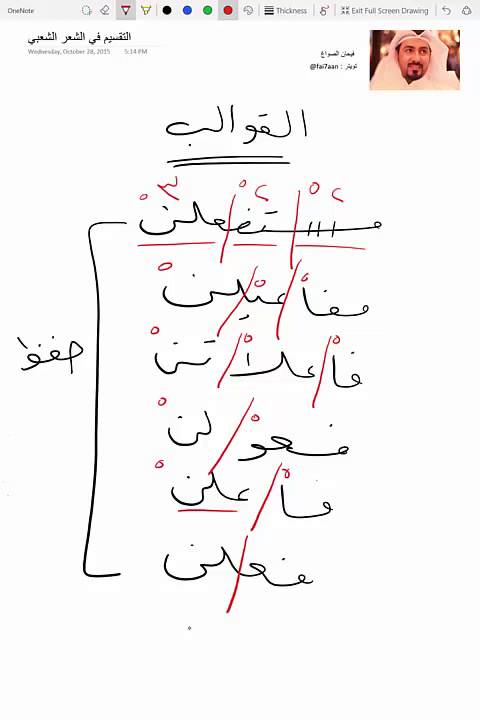 OneNote
Thickness
Exit Full Screen Drawing
التقسيم في الشعر الشعبي
Wednesday, October 28, 2015 5:14 PM
فيحان الصواغ
تويتر : @fai7aan
القوالب
٢٥ ٢٥ ٣٥
مستفعلن
مفاعيلن
فاعلاتن
حفظ
فعولن
فاعلن
فعلن